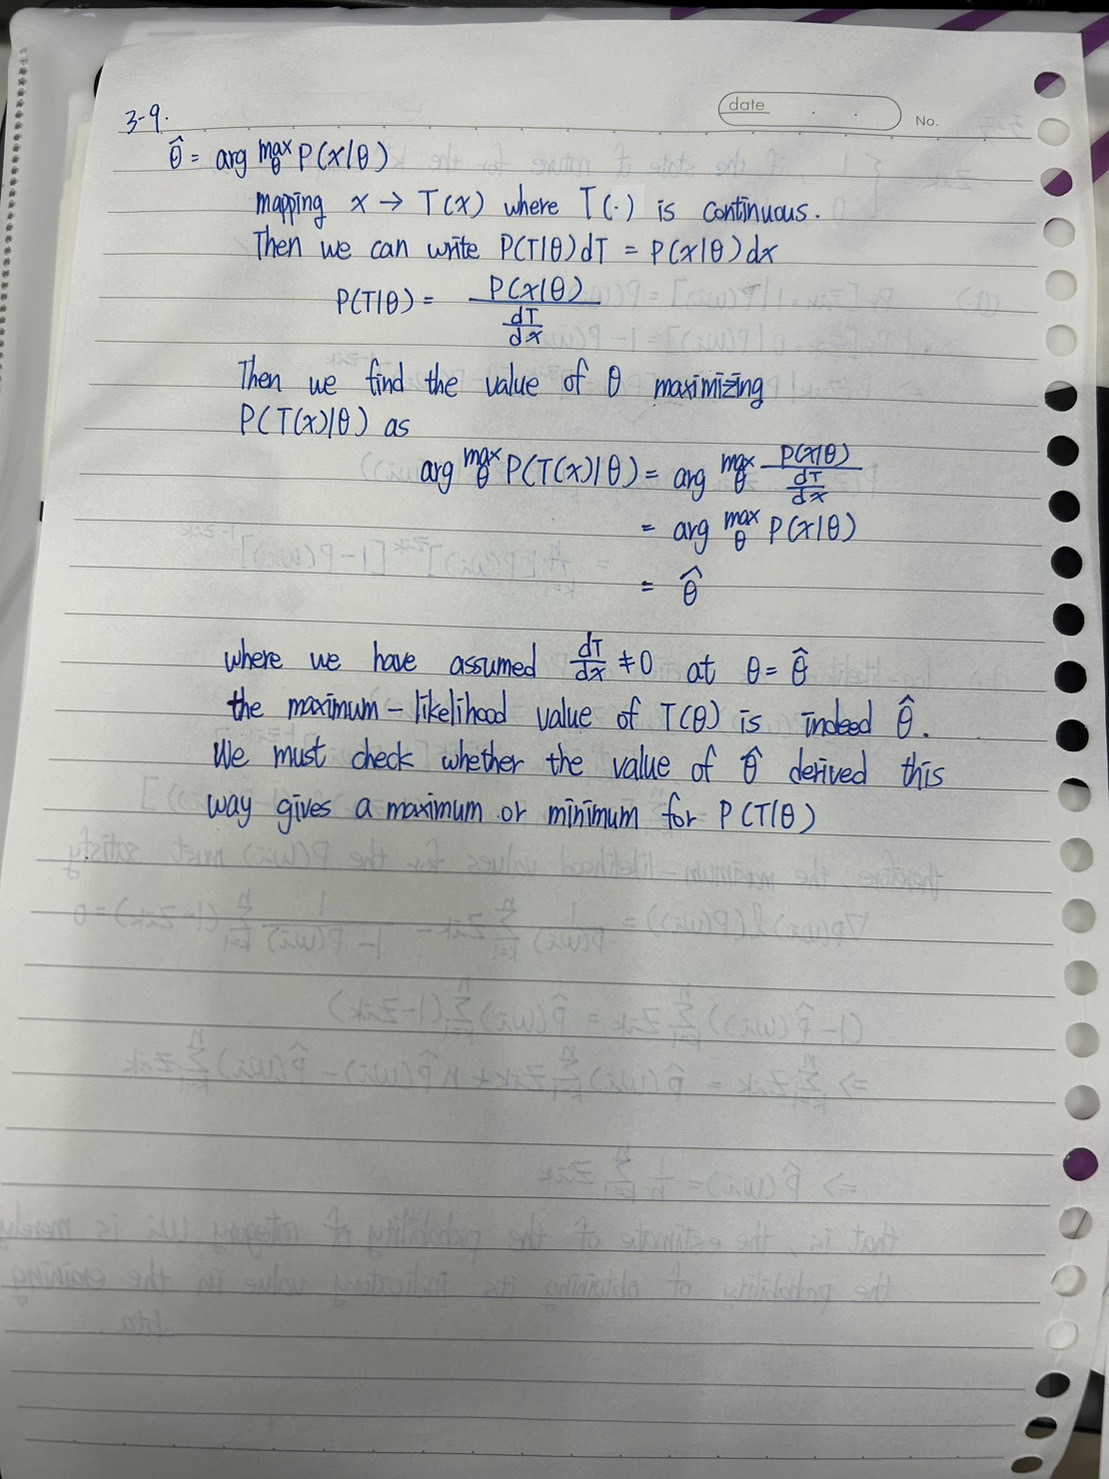 date
No.
3-9.
θ̂ = arg max_θ P(x|θ)
mapping x → T(x) where T(·) is continuous.
Then we can write P(T|θ)dT = P(x|θ)dx
P(T|θ) = P(x|θ) / (dT/dx)
Then we find the value of θ maximizing
P(T(x)|θ) as
arg max_θ P(T(x)|θ) = arg max_θ P(x|θ) / (dT/dx)
= arg max_θ P(x|θ)
= θ̂
where we have assumed dT/dx ≠ 0 at θ = θ̂
the maximum-likelihood value of T(θ) is indeed θ̂.
We must check whether the value of θ̂ derived this
way gives a maximum or minimum for P(T|θ)